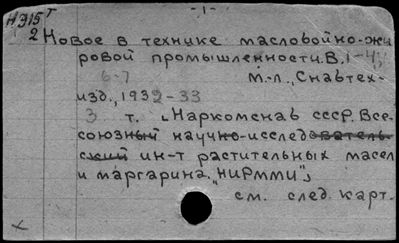 -1-
Н915т
2 Новое в технике масловойно-жи
ровой промышленности. В.1-4;
6-7 М.-Л., Снабтех-
изд., 1932-33
3 т. (Наркомснаб СССР. Все-
союзный научно-исследователь-
ский ин-т растительных масел
и маргарина. "НИРММИ")
см. след карт.